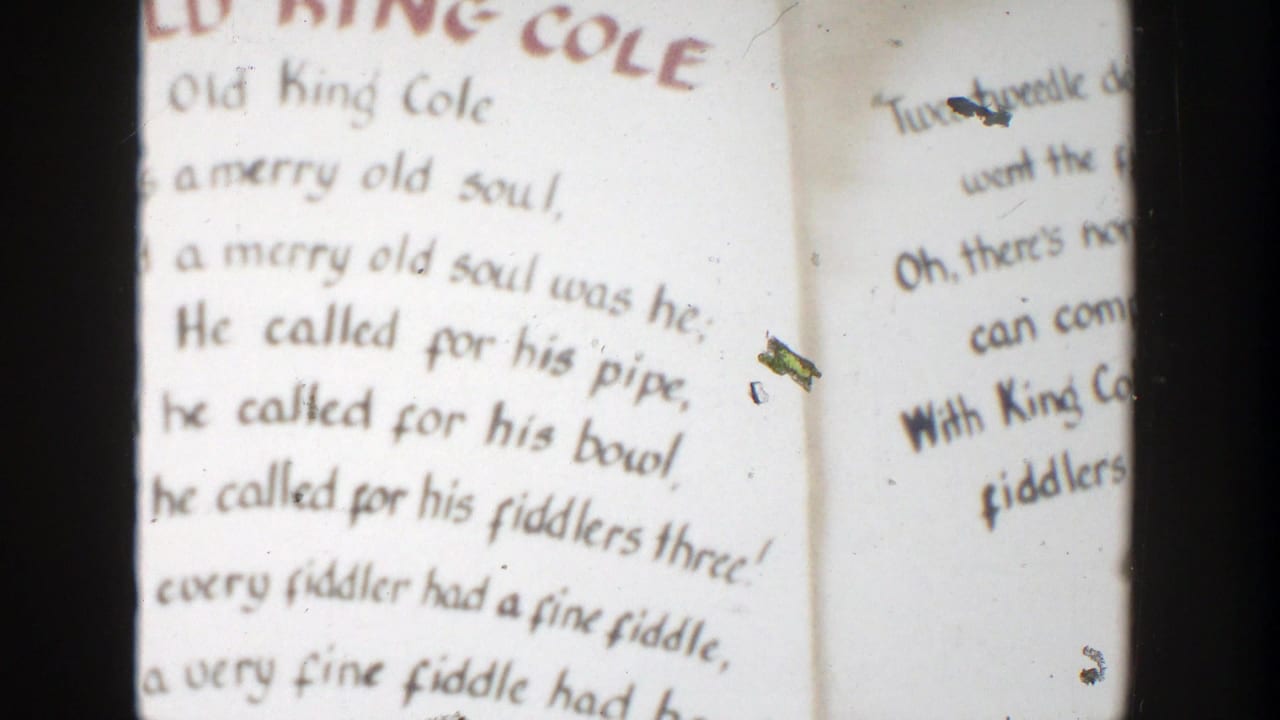 LD KING COLE
Old King Cole
s a merry old soul,
d a merry old soul was he;
He called for his pipe,
he called for his bowl,
he called for his fiddlers three!
every fiddler had a fine fiddle,
a very fine fiddle had he
tweedle de
went the f
Oh, there's non
can com
With King Co
fiddlers